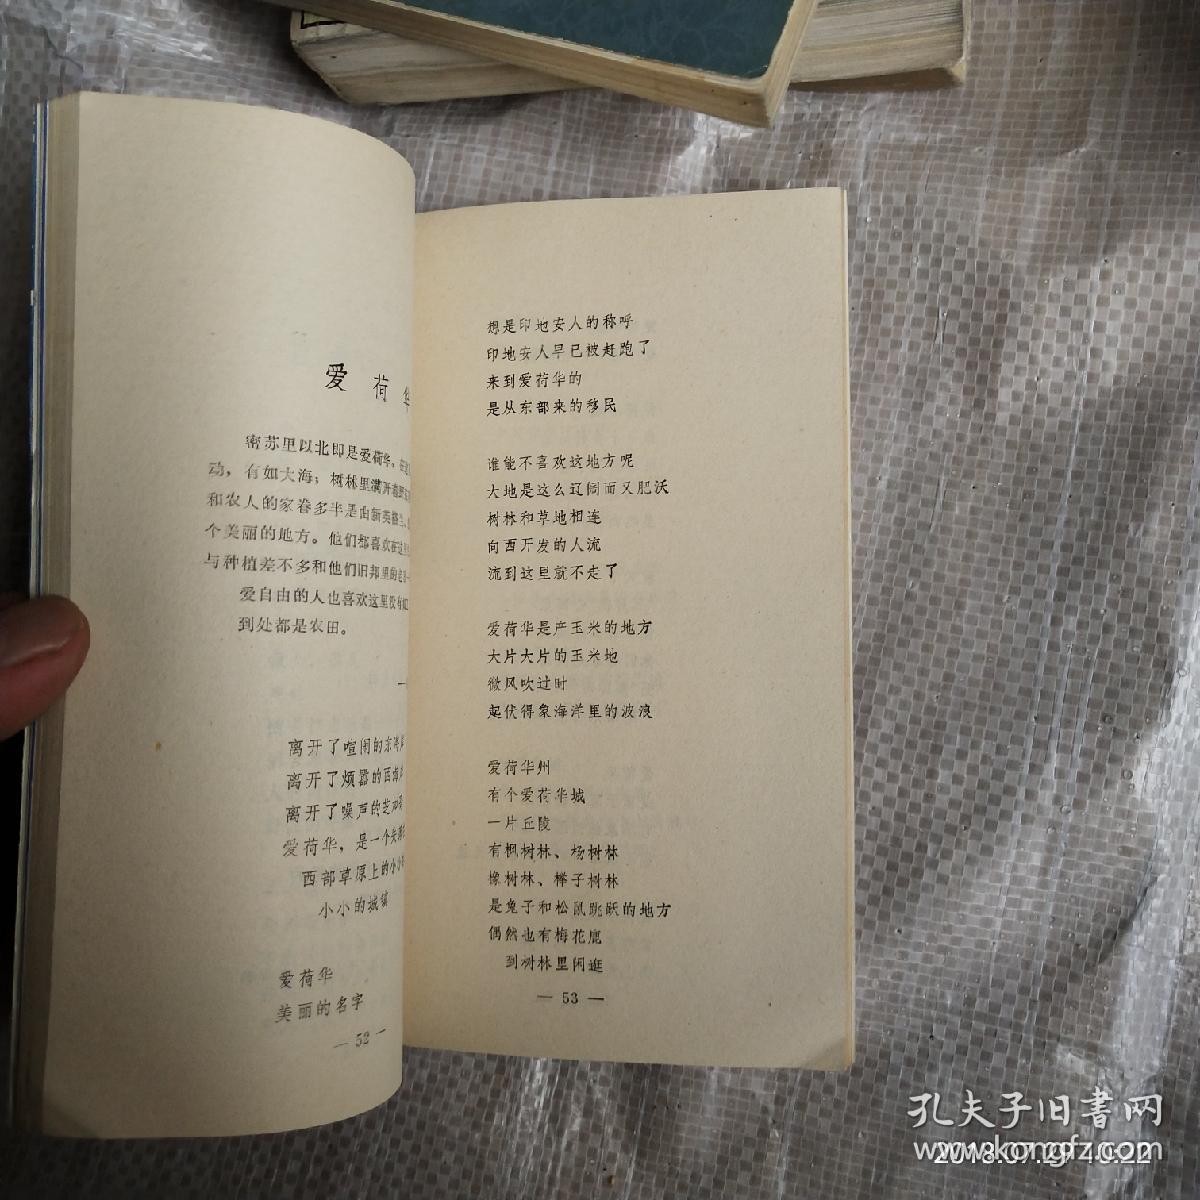 爱荷华
密苏里以北即是爱荷华,
动,有如大海;树林里满
和农人的家眷多半是由新英格兰
个美丽的地方。他们都喜欢在这里
与种植差不多和他们旧邦里的
爱自由的人也喜欢这里
到处都是农田。
离开了喧闹的东海
离开了烦嚣的西海
离开了噪声的芝加哥
爱荷华,是一个
西部草原上的小小
小小的城镇
爱荷华
美丽的名字
— 52 —
想是印地安人的称呼
印地安人早已被赶跑了
来到爱荷华的
是从东部来的移民
谁能不喜欢这地方呢
大地是这么辽阔而又肥沃
树林和草地相连
向西开发的人流
流到这里就不走了
爱荷华是产玉米的地方
大片大片的玉米地
微风吹过时
起伏得象海洋里的波浪
爱荷华州
有个爱荷华城
一片丘陵
有枫树林、杨树林
橡树林、榉子树林
是兔子和松鼠跳跃的地方
偶然也有梅花鹿
到树林里闲逛
— 53 —
孔夫子旧書网
www.kongfz.com
2018.07.29 10:22